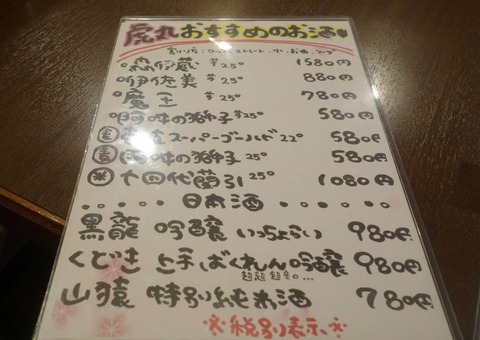 虎丸おすすめのお酒
割り方:ロック、ストレート、水、お湯、ソーダ
森伊蔵 芋25° 1580円
伊佐美 芋25° 880円
魔王 芋25° 780円
吽の獅子 芋25° 580円
スーパーゴールド 22° 580円
の獅子 25° 580円
米 十四代蘭引 25° 1080円
・・・・・日本酒・・・・・
黒龍 吟醸 いっちょらい 980円
くどき上手 ばくれん吟醸 980円
超超超辛。…
山猿 特別純米酒 780円
※税別表示※